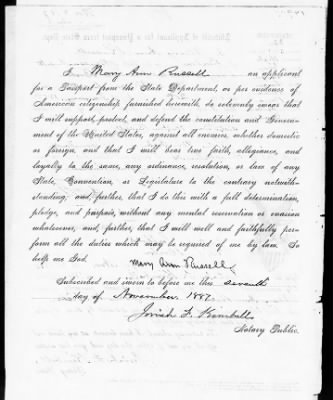 I Mary Ann Russell an applicant
for a Passport from the State Department, as per evidence of
American citizenship furnished herewith, do solemnly swear that
I will support, protect, and defend the constitution and Govern-
ment of the United States, against all enemies, whether domestic
or foreign, and that I will bear true faith, allegiance, and
loyalty to the same, any ordinance, resolution, or law of any
State, Convention, or Legislature to the contrary notwith-
standing; and, further, that I do this with a full determination,
pledge, and purpose, without any mental reservation or evasion
whatsoever, and, further, that I will well and faithfully per-
form all the duties which may be required of me by law. So
help me God.
Mary Ann Russell
Subscribed and sworn to before me this seventh
day of November. 1887.
Josiah F. Kimball
Notary Public.